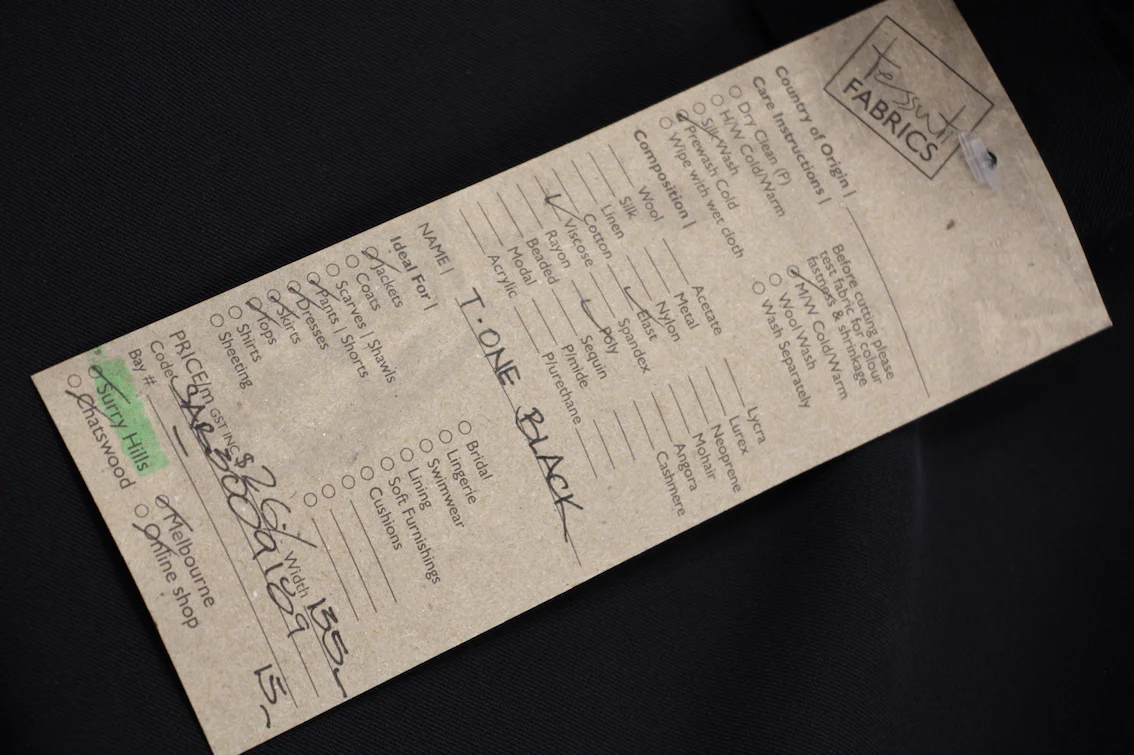 tessuti
FABRICS
Country of Origin |
Care Instructions |
Dry Clean (P)
H/W Cold/Warm
Silk Wash
Prewash Cold
Wipe with wet cloth
Before cutting please
test fabric for colour
fastness & shrinkage
M/W Cold/Warm
Wool Wash
Wash Separately
Composition |
Wool
Silk
Linen
Cotton
Viscose
Rayon
Beaded
Modal
Acrylic
Acetate
Metal
Nylon
Elast
Spandex
Poly
Sequin
P/mide
P/urethane
Lycra
Lurex
Neoprene
Mohair
Angora
Cashmere
NAME | T.ONE BLACK
Ideal For |
Jackets
Coats
Scarves | Shawls
Pants | Shorts
Dresses
Skirts
Tops
Shirts
Sheeting
Bridal
Lingerie
Swimwear
Lining
Soft Furnishings
Cushions
PRICE/m GST INC $26./ Width 135
Code
Bay # 15
Surry Hills
Chatswood
Melbourne
Online shop